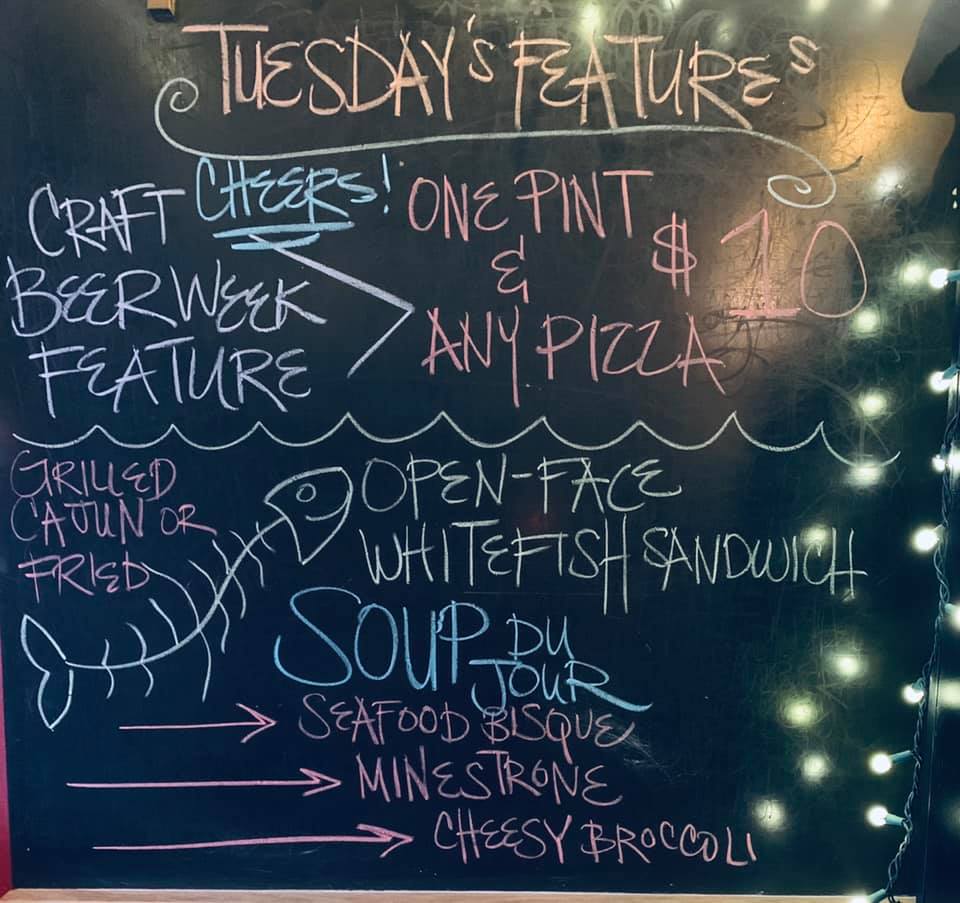 TUESDAY'S FEATURES
CHEERS!
CRAFT
BEER WEEK
FEATURE
ONE PINT
&
ANY PIZZA
$10
GRILLED
CAJUN OR
FRIED
OPEN-FACE
WHITEFISH SANDWICH
SOUP DU
JOUR
SEAFOOD BISQUE
MINESTRONE
CHEESY BROCCOLI